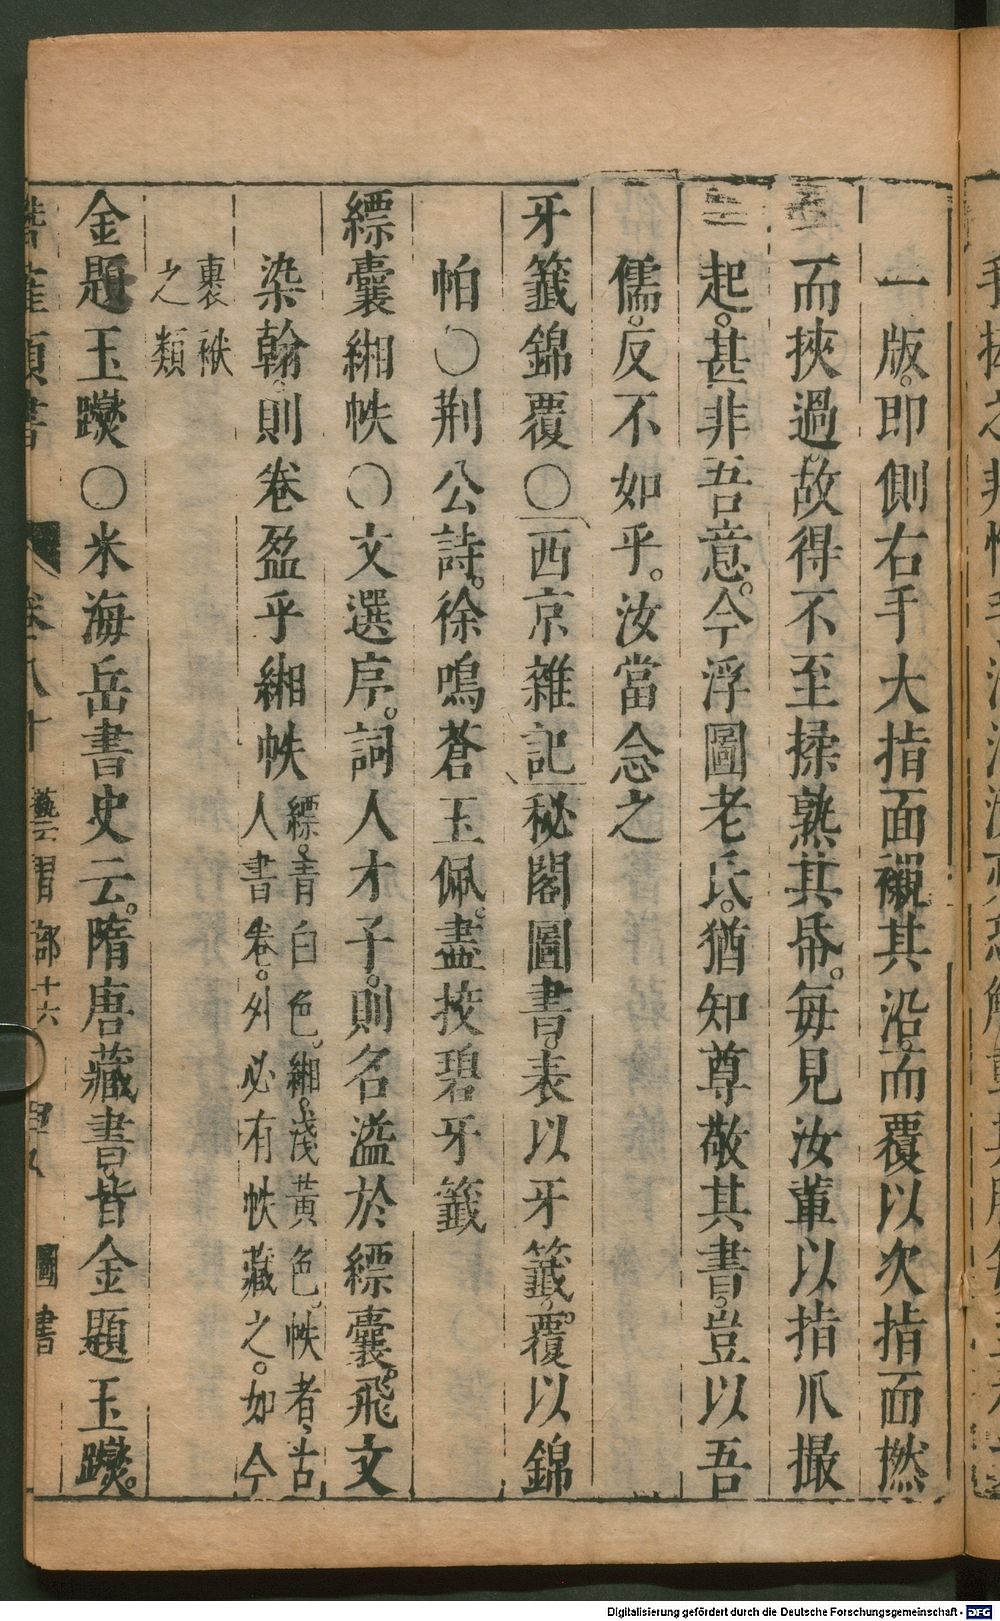 一版。即側右手大指面襯其沿。而覆以次指面撚
而挾過。故得不至揉熟其帋。每見汝輩以指爪撮
起。甚非吾意。今浮圖老氏。猶知尊敬其書。豈以吾
儒。反不如乎。汝當念之
牙籤錦覆〇西京雜記秘閣圖書。表以牙籤。覆以錦
帕〇荆公詩。徐鳴蒼玉佩。盡挍碧牙籤
縹囊緗帙〇文選序。詞人才子。則名溢於縹囊。飛文
染翰。則卷盈乎緗帙縹。青白色。緗。淺黃色。帙者、古
人書卷。外必有帙藏之。如今
裹袱
之類
金題玉躞〇米海岳書史云。隋唐藏書。皆金題玉躞。
卷八十
十六
圖書
Digitalisierung gefördert durch die Deutsche Forschungsgemeinschaft - DFG